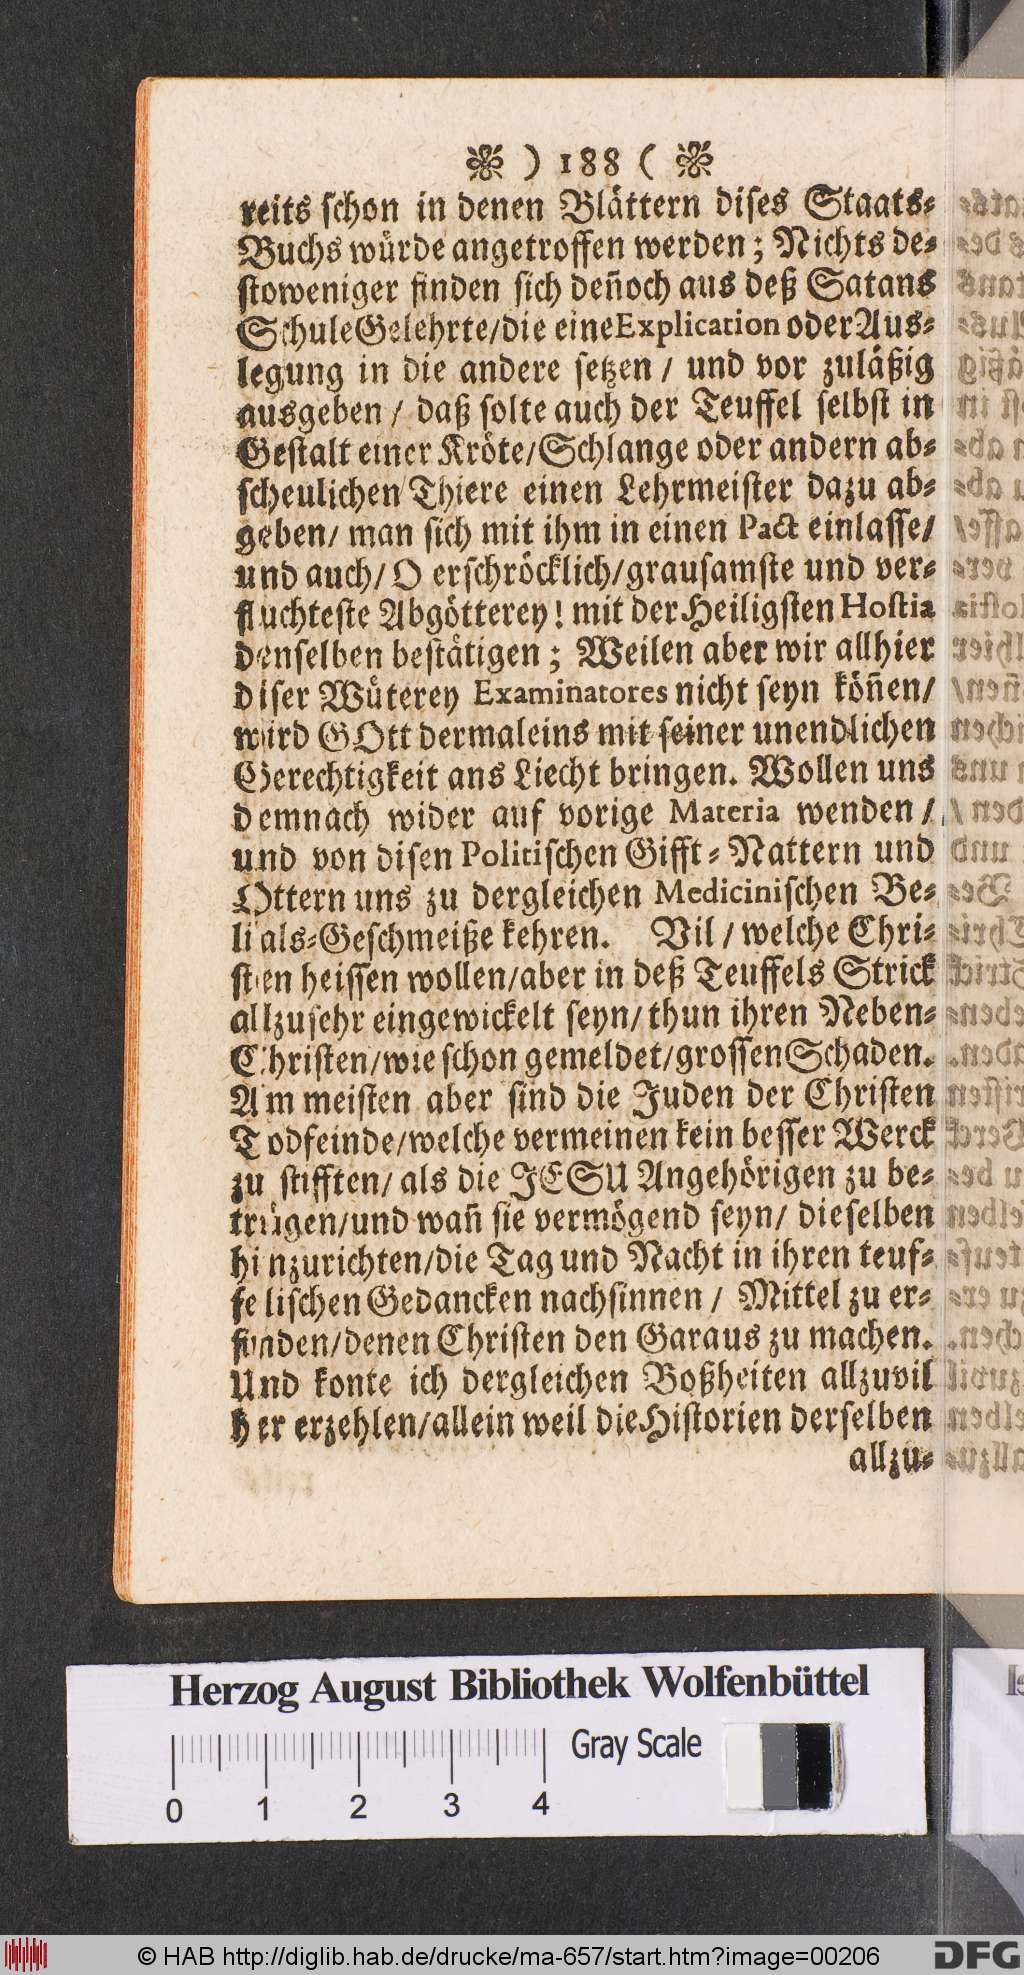 ❧ ) 188 ( ❧
reits schon in denen Blättern dises Staats-
Buchs würde angetroffen werden; Nichts de-
stoweniger finden sich deñoch aus deß Satans
Schule Gelehrte/die eine Explication oder Aus-
legung in die andere setzen / und vor zuläßig
ausgeben / daß solte auch der Teuffel selbst in
Gestalt einer Kröte/Schlange oder andern ab-
scheulichen Thiere einen Lehrmeister dazu ab-
geben/ man sich mit ihm in einen Pact einlasse/
und auch/ O erschröcklich/grausamste und ver-
fluchteste Abgötterey! mit der Heiligsten Hostia
denselben bestätigen; Weilen aber wir allhier
diser Wüterey Examinatores nicht seyn köñen/
wird GOtt dermaleins mit seiner unendlichen
Gerechtigkeit ans Liecht bringen. Wollen uns
demnach wider auf vorige Materia wenden /
und von disen Politischen Gifft-Nattern und
Ottern uns zu dergleichen Medicinischen Be-
lials-Geschmeiße kehren. Vil / welche Chri-
sten heissen wollen/aber in deß Teuffels Strick
allzusehr eingewickelt seyn/ thun ihren Neben-
Christen/wie schon gemeldet/grossen Schaden.
Am meisten aber sind die Juden der Christen
Todfeinde/welche vermeinen kein besser Werck
zu stifften/ als die JESU Angehörigen zu be-
trügen/und wañ sie vermögend seyn/ dieselben
hinzurichten/die Tag und Nacht in ihren teuf-
felischen Gedancken nachsinnen / Mittel zu er-
finden/denen Christen den Garaus zu machen.
Und konte ich dergleichen Boßheiten allzuvil
her erzehlen/allein weil die Historien derselben
allzu-
Herzog August Bibliothek Wolfenbüttel
Gray Scale
0 1 2 3 4
© HAB http://diglib.hab.de/drucke/ma-657/start.htm?image=00206
DFG